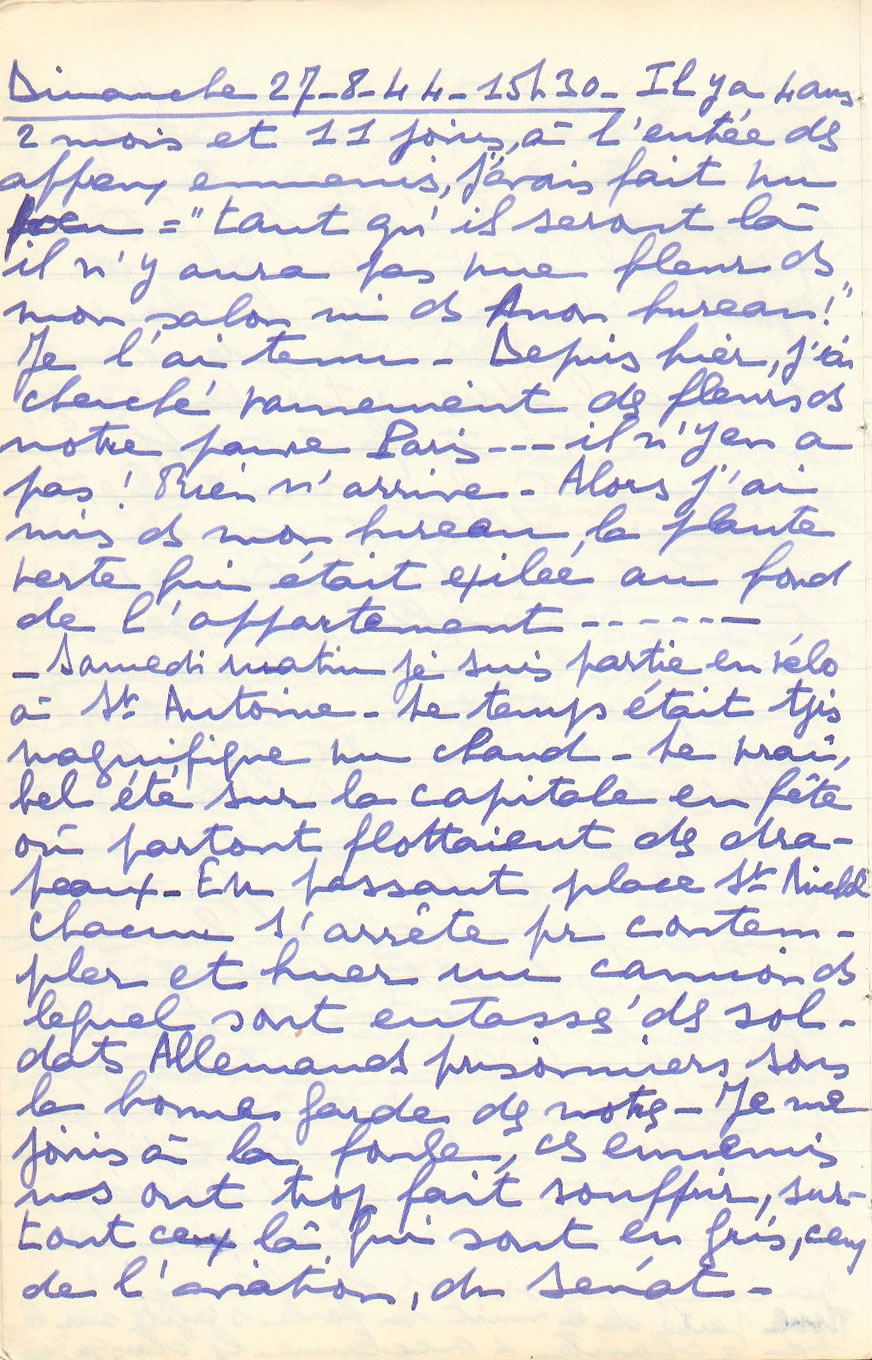 Dimanche 27-8-44 - 15h30 - Il y a 4 ans
2 mois et 11 jours, à l'entrée des
affreux ennemis, j'avais fait un
voeu = "tant qu'il seront là
il n'y aura pas une fleur ds
mon salon ni ds mon bureau!"
Je l'ai tenu - Depuis hier, j'ai
cherché vainement des fleurs ds
notre pauvre Paris --- il n'y en a
pas! Rien n'arrive - Alors j'ai
mis ds mon bureau la plante
verte qui était exilée au fond
de l'appartement ------
- Samedi matin je suis partie en vélo
à St Antoine - Le temps était tjs
magnifique un chaud - Le vrai,
bel été sur la capitale en fête
où partout flottaient des dra-
peaux - En passant place St Michel
chacun s'arrête pr contem-
pler et huer un camion ds
lequel sont entassé des sol-
dats Allemands prisonniers, sous
la bonne garde des notres - Je me
joins à la foule, ces ennemis
nous ont trop fait souffrir, sur-
tout ceux là qui sont en gris, ceux
de l'aviation, du Sénat -